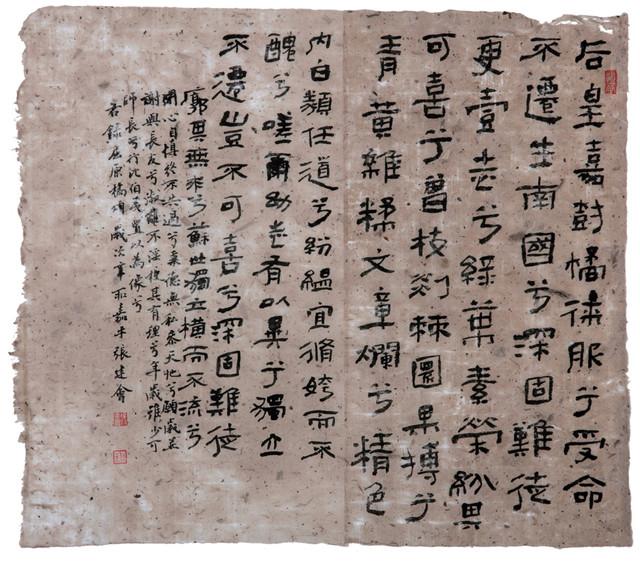 后皇嘉尌橘徕服兮受命
不遷生南國兮深固難徙
更壹志兮綠葉素榮紛其
可喜兮曾枝剡棘圜果摶兮
青黃雜糅文章爛兮精色
內白類任道兮紛緼宜脩姱而不
醜兮嗟爾幼志有以異兮獨立
不遷豈不可喜兮深固難徙
廓其無求兮蘇世獨立橫而不流兮
閉心自慎終不失過兮秉德無私參天地兮願歲并
謝與長友兮淑離不淫梗其有理兮年歲雖少可
師長兮行比伯夷置以為像兮
右錄屈原橘頌歲次辛卯嘉平張建會